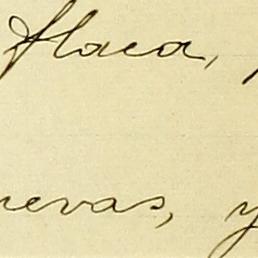 flaca,
nuevas, y